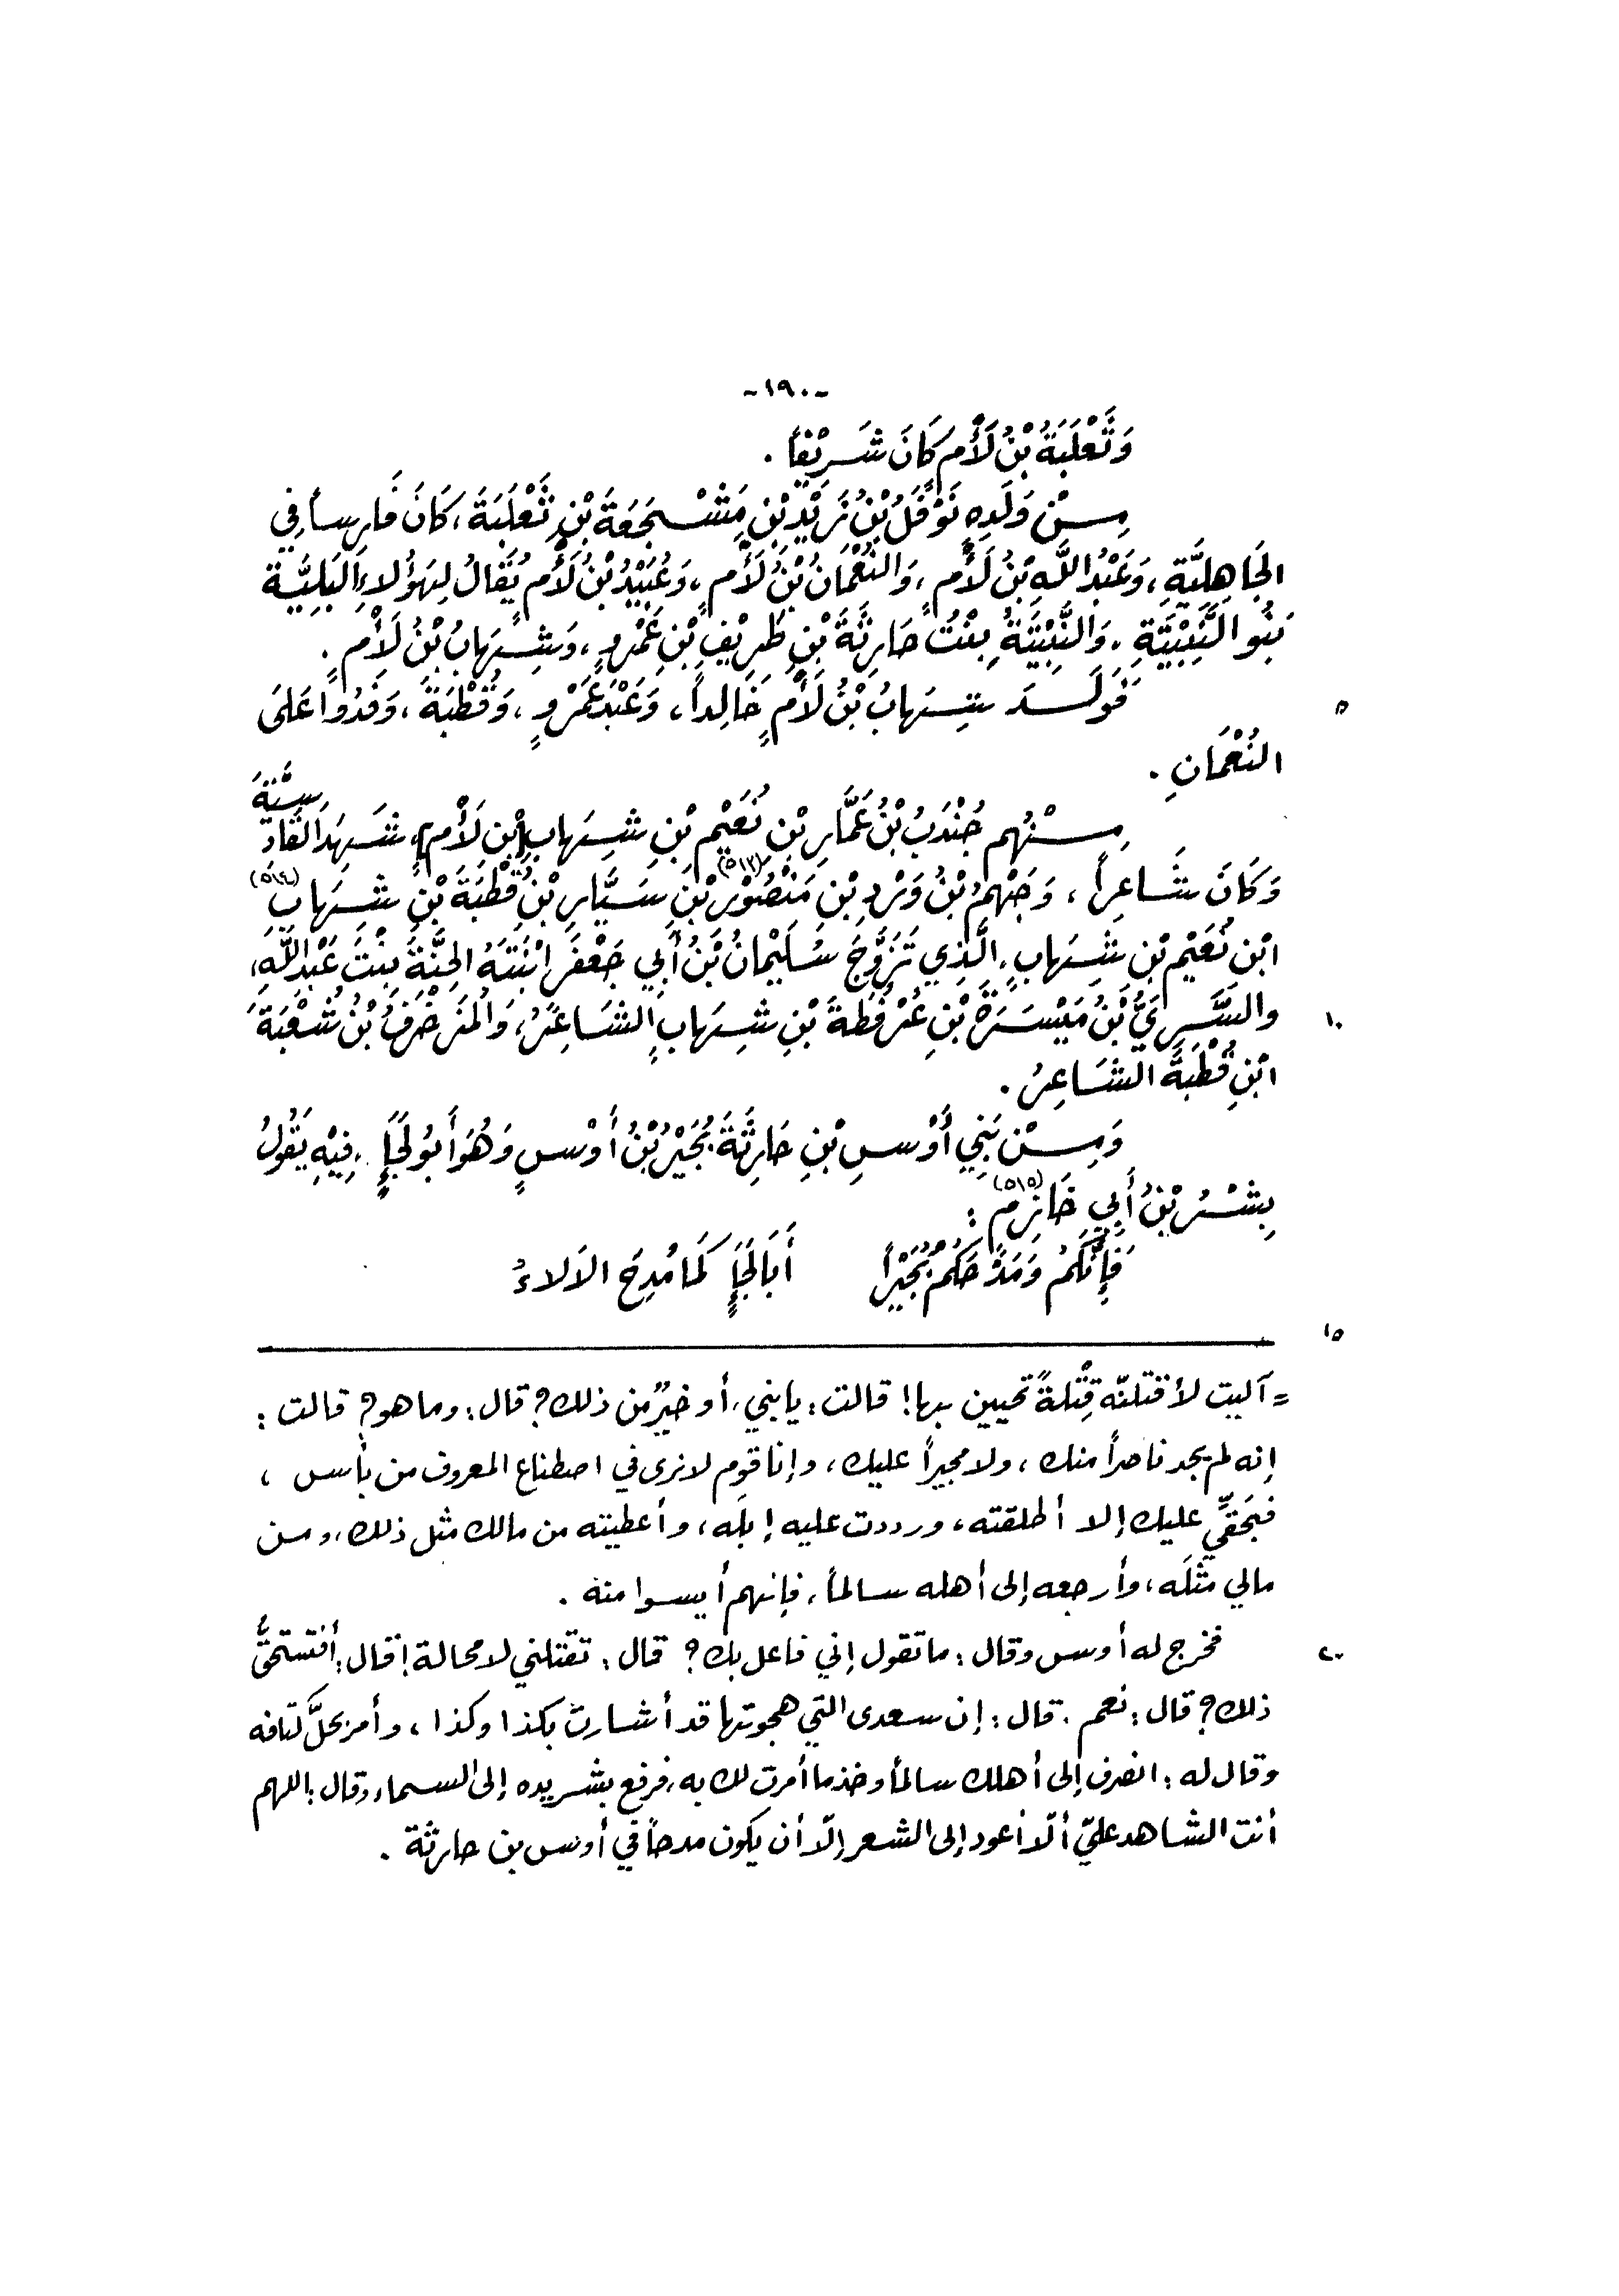 -١٩٠-
وَثَعْلَبَةُ بْنُ لَأْمٍ كَانَ شَرِيْفاً .
مِنْ وَلَدِهِ نَوْفَلُ بْنُ زَيْدِ بْنِ مَشْجَعَةَ بْنِ ثَعْلَبَةَ، كَانَ فَارِساً فِي
الجَاهِلِيَّةِ، وَعَبْدُ اللَّهِ بْنُ لَأْمٍ، وَالنُّعْمَانُ بْنُ لَأْمٍ، وَعُبَيْدُ بْنُ لَأْمٍ يُقَالُ لِهَؤُلاءِ البَلِيَّة
بَنُو النَّبِيْتَةِ، وَالنَّبِيْتَةُ بِنْتُ حَارِثَةَ بْنِ طَرِيْفِ بْنِ عَمْرٍو، وَشِهَابُ بْنُ لَأْمٍ .
٥ فَوَلَدَ شِهَابُ بْنُ لَأْمٍ خَالِداً، وَعَبْدَ عَمْرٍو، وَقُطْبَةَ، وَفَدُوا عَلَى
النُّعْمَانِ .
مِنْهُم جُنْدَبُ بْنُ عَمَّارِ بْنِ نُعَيْمِ بْنِ شِهَابِ [بْنِ لَأْمٍ] شَهِدَ القَادِسِيَّةَ
وَكَانَ شَاعِراً، وَجَهْمُ بْنُ وَرْدِ بْنِ مَنْصُوْرِ (٥١٣) بْنِ سَيَّارِ بْنِ قُطْبَةَ بْنِ شِهَابِ (٥١٤)
ابْنِ نُعَيْمِ بْنِ شِهَابٍ، الَّذِي تَزَوَّجَ سُلَيْمَانُ بْنُ أَبِي جَعْفَرٍ ابْنَتَهُ الجَنَّةَ بِنْتَ عَبْدِ اللَّهِ،
١٠ وَالسَّرِيُّ بْنُ مَيْسَرَةَ بْنِ عُرْفُطَةَ بْنِ شِهَابٍ الشَّاعِرُ، وَالمُزَخْرَفُ بْنُ شُعْبَةَ
ابْنِ قُطْبَةَ الشَّاعِرُ .
وَمِنْ بَنِي أَوْسِ بْنِ حَارِثَةَ بُجَيْرُ بْنُ أَوْسٍ وَهُوَ أَبُو لَجَإٍ، فِيْهِ يَقُولُ
بِشْرُ بْنُ أَبِي خَازِمٍ (٥١٥) :
فَإِنَّكُمُ وَمَدْحَكُمُ بُجَيْراً أَبَا لَجَإٍ كَمَا مُدِحَ الأَلاءُ
١٥
= آليت لأقتلنّه قِتْلةً تحيين بها! قالت : يا بني، أو خيرٌ من ذلك؟ قال : وما هو؟ قالت :
إنه لم يجد ناصراً منك، ولا مجيراً عليك، وإنا قوم لا نرى في اصطناع المعروف من بأس ،
فبحَقِّي عليك إلا أطلقته، ورددت عليه إبلَه، وأعطيته من مالك مثل ذلك، ومن
مالي مثلَه، وأرجعه إلى أهله سالماً، فإنهم أيسوا منه .
٢٠ فخرج له أوس وقال : ما تقول إني فاعل بك؟ قال : تقتلني لا محالة! قال : أفتستحقُّ
ذلك؟ قال : نعم . قال : إن سعدى التي هجوتها قد أشارت بكذا وكذا ، وأمر بحلِّ كتافه
وقال له : انصرف إلى أهلك سالماً وخذ ما أمرت لك به، فرفع بشر يده إلى السماء وقال : اللهم
أنت الشاهد عليّ ألّا أعود إلى الشعر إلّا أن يكون مدحاً في أوس بن حارثة .